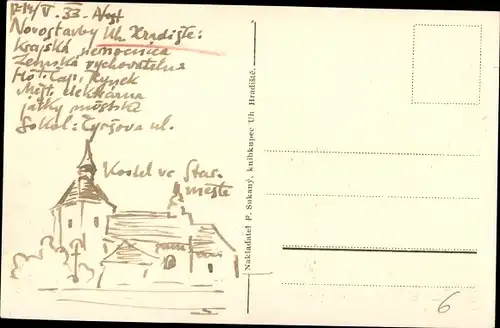 12-14/V. 33.
Novostavby Uh. Hradiště:
Krajská nemocnice
Zemská vychovatelna
Hot. Čap. Rynek
Měst. elektrárna
jatky městské
Sokol: Tyršova ul.
Kostel ve Star.
městě
Nakladatel F. Sakaný, knihkupec Uh Hradiště.
6